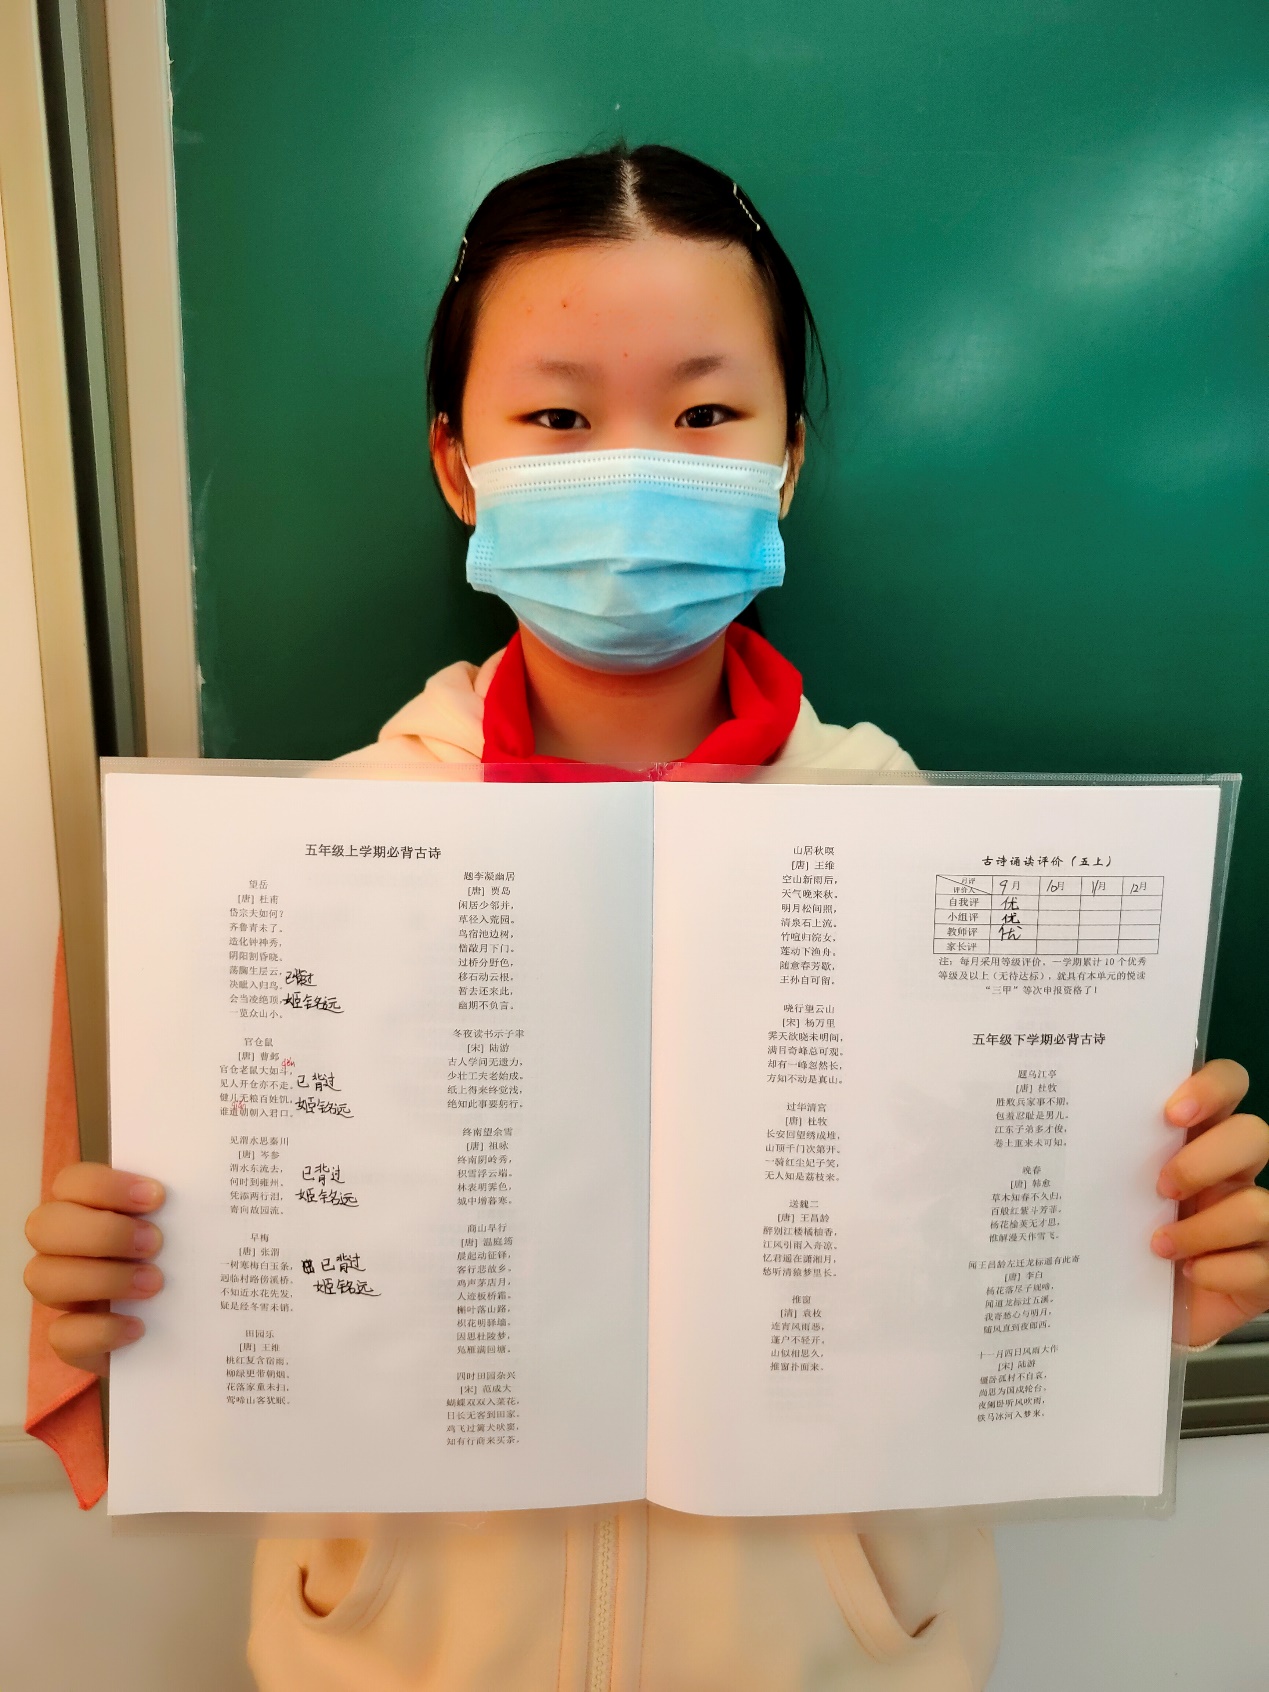 五年级上学期必背古诗
望岳
[唐] 杜甫
岱宗夫如何？
齐鲁青未了。
造化钟神秀，
阴阳割昏晓。
荡胸生层云，
决眦入归鸟。
会当凌绝顶，
一览众山小。
已背过
姬铭远
官仓鼠
[唐] 曹邺
官仓老鼠大如斗，
见人开仓亦不走。
健儿无粮百姓饥，
谁遣朝朝入君口。
已背过
姬铭远
见渭水思秦川
[唐] 岑参
渭水东流去，
何时到雍州。
凭添两行泪，
寄向故园流。
已背过
姬铭远
早梅
[唐] 张谓
一树寒梅白玉条，
迥临村路傍溪桥。
不知近水花先发，
疑是经冬雪未销。
已背过
姬铭远
田园乐
[唐] 王维
桃红复含宿雨，
柳绿更带朝烟。
花落家童未扫，
莺啼山客犹眠。
题李凝幽居
[唐] 贾岛
闲居少邻并，
草径入荒园。
鸟宿池边树，
僧敲月下门。
过桥分野色，
移石动云根。
暂去还来此，
幽期不负言。
冬夜读书示子聿
[宋] 陆游
古人学问无遗力，
少壮工夫老始成。
纸上得来终觉浅，
绝知此事要躬行。
终南望余雪
[唐] 祖咏
终南阴岭秀，
积雪浮云端。
林表明霁色，
城中增暮寒。
商山早行
[唐] 温庭筠
晨起动征铎，
客行悲故乡。
鸡声茅店月，
人迹板桥霜。
槲叶落山路，
枳花明驿墙。
因思杜陵梦，
凫雁满回塘。
四时田园杂兴
[宋] 范成大
蝴蝶双双入菜花，
日长无客到田家。
鸡飞过篱犬吠窦，
知有行商来买茶。
山居秋暝
[唐] 王维
空山新雨后，
天气晚来秋。
明月松间照，
清泉石上流。
竹喧归浣女，
莲动下渔舟。
随意春芳歇，
王孙自可留。
晓行望云山
[宋] 杨万里
霁天欲晓未明间，
满目奇峰总可观。
却有一峰忽然长，
方知不动是真山。
过华清宫
[唐] 杜牧
长安回望绣成堆，
山顶千门次第开。
一骑红尘妃子笑，
无人知是荔枝来。
送魏二
[唐] 王昌龄
醉别江楼橘柚香，
江风引雨入舟凉。
忆君遥在潇湘月，
愁听清猿梦里长。
推窗
[清] 袁枚
连宵风雨恶，
蓬户不轻开。
山似相思久，
推窗扑面来。
古诗诵读评价（五上）
月评 9月 10月 11月 12月
评价人
自我评 优
小组评 优
教师评 优
家长评
注：每月采用等级评价，一学期累计 10 个优秀
等级及以上（无待达标），就具有本单元的悦读
“三甲”等次申报资格了！
五年级下学期必背古诗
题乌江亭
[唐] 杜牧
胜败兵家事不期，
包羞忍耻是男儿。
江东子弟多才俊，
卷土重来未可知。
晚春
[唐] 韩愈
草木知春不久归，
百般红紫斗芳菲。
杨花榆荚无才思，
惟解漫天作雪飞。
闻王昌龄左迁龙标遥有此寄
[唐] 李白
杨花落尽子规啼，
闻道龙标过五溪。
我寄愁心与明月，
随风直到夜郎西。
十一月四日风雨大作
[宋] 陆游
僵卧孤村不自哀，
尚思为国戍轮台。
夜阑卧听风吹雨，
铁马冰河入梦来。